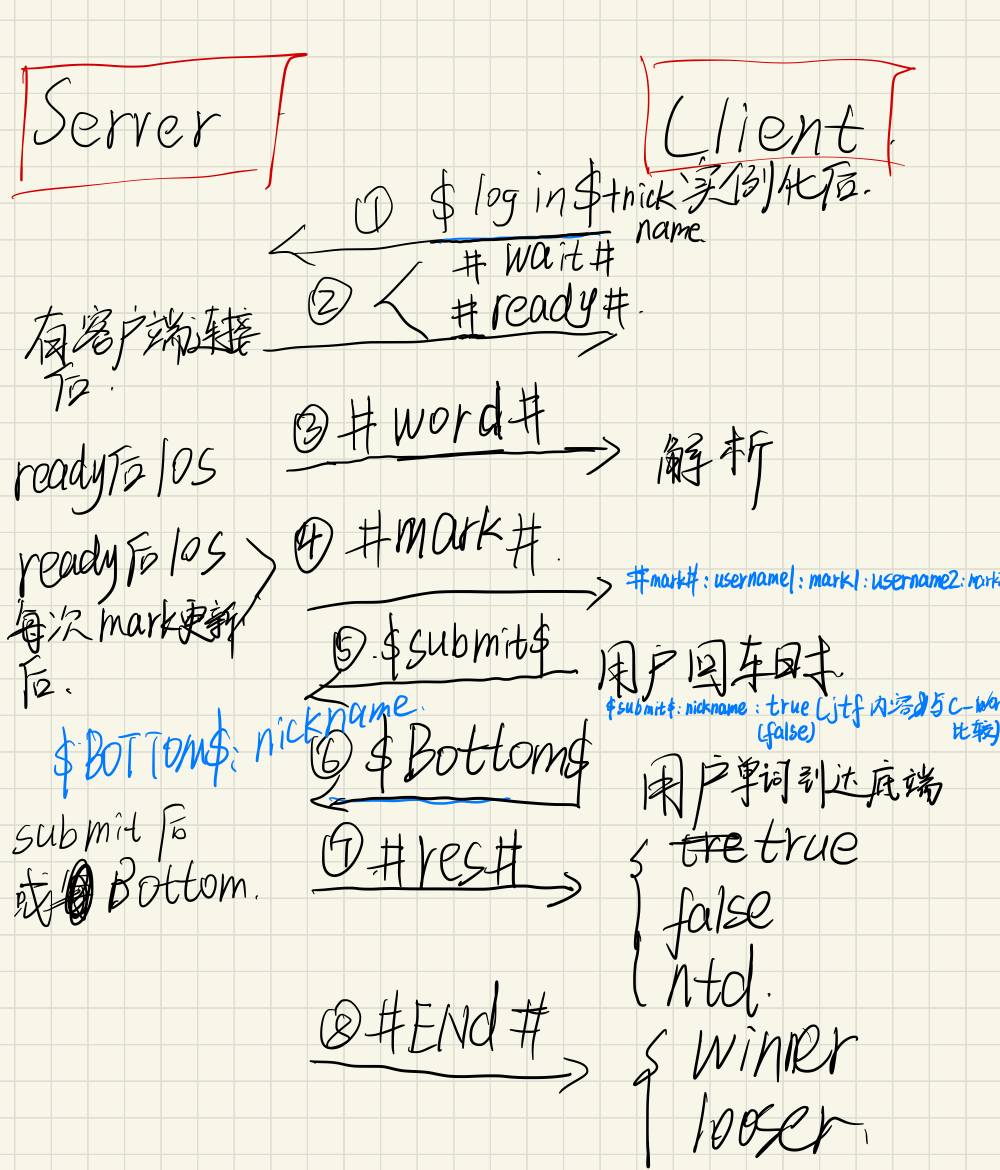 Server
Client
① $ log in $+nick 实例化后.
name.
# wait #
② # ready #.
有客户端连接
后.
③ # word #
解析
ready后 10s
④ #mark #.
ready后 10s
#mark#: username1: mark1: username2: mark
每次 mark更新
后.
⑤ .$submit$
用户回车时
$submit$: nickname : true (jtf 内容与 C-wor
(false) 比较)
$BOTTOM$: nickname.
⑥ $Bottom$
用户单词到达底端
submit 后
或 Bottom.
⑦ #res#
true
false
ntd.
⑧ #END #
winner
looser.